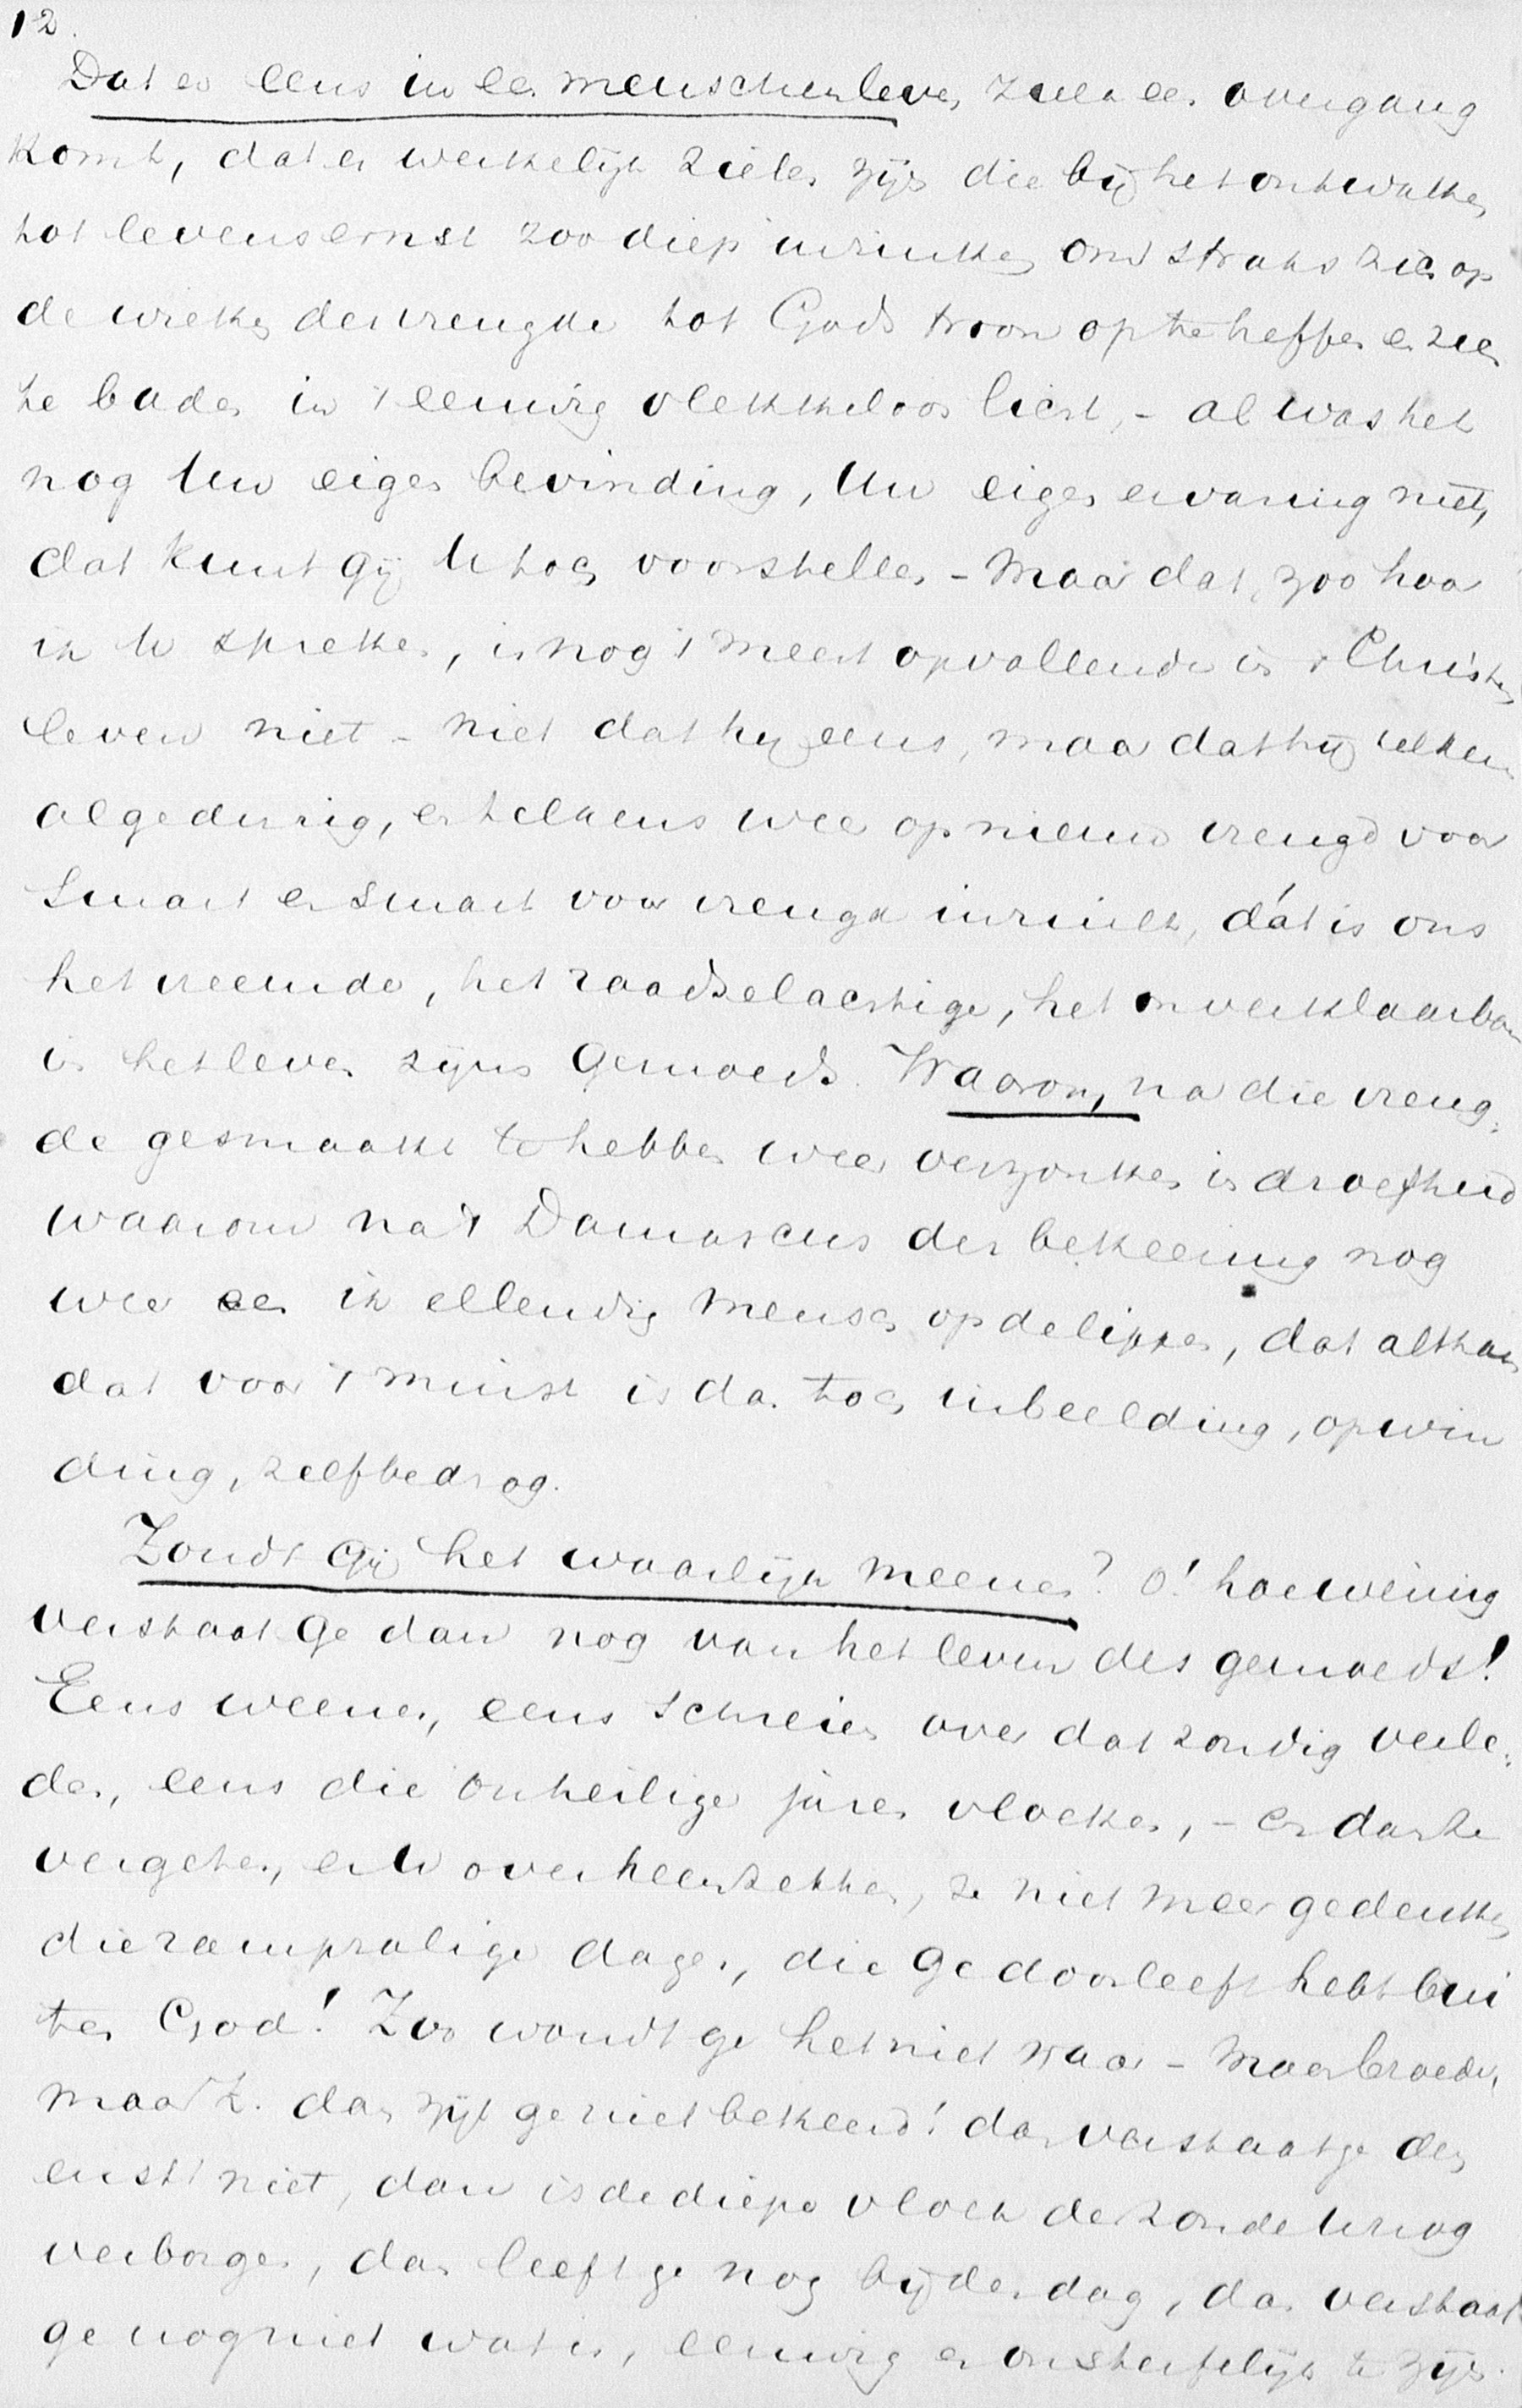 12.
Dat er eens in een menschenleven zulk een overgang
komt, dat er werkelijk zielen zijn die bij het ontwaken
tot levensernst zoo diep inzinken om straks zich op
de wieken der vreugde tot Gods troon op te heffen en zich
te baden in 't eeuwig vlekkeloos licht, - al was het
nog Uw eigen bevinding, Uw eigen ervaring niet,
dat kunt gij U toch voorstellen - Maar dat, zoo hoor
ik U spreken, is nog 't meest opvallende in 't Christen
leven niet - niet dat hij eens, maar dat hij telkens
algedurig, en telkens weer op nieuw vreugd voor
smart en smart voor vreugde inruilt, dát is ons
het vreemde, het raadselachtige, het onverklaarbare
in het leven zijns gemoeds. Waarom, na die vreug:
de gesmaakt te hebben weer verzonken in droefheid
waarom na 't Damascus der bekeering nog
weer een ik ellendig mensch op de lippen, dat althans
dat voor 't minst is dan toch inbeelding, opwin
ding, zelfbedrog.
Zoudt Gij het waarlijk meenen? o! hoe weinig
verstaat Ge dan nog van het leven des gemoeds!
Eens weenen, eens schreien over dat zondig verle:
den, eens die onheilige jaren vloeken, - en dan te
vergeten, er U overheen zetten, ze niet meer gedenken
die rampzalige dagen, die Ge doorleeft hebt bui
ten God! Zoo woudt ge het niet waar - Maar broeders,
maar Z. dan zijt ge niet bekeerd! dan verstaat ge den
ernst niet, dan is de diepe vloek der zonde U nog
verborgen, dan leeft ge nog bij den dag, dan verstaat
ge nog niet wat is, eeuwig en onsterfelijk te zijn.